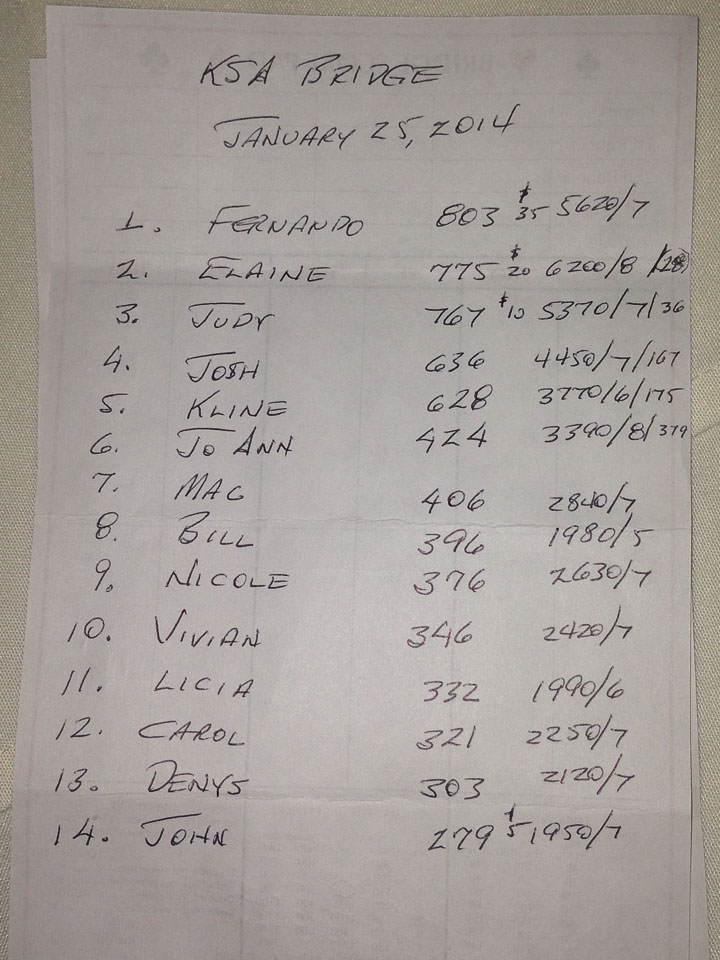 KSA BRIDGE
JANUARY 25, 2014
1. FERNANDO 803 $35 5620/7
2. ELAINE 775 $20 6200/8 /28
3. JUDY 767 $10 5370/7/36
4. JOSH 636 4450/7/167
5. KLINE 628 3770/6/175
6. JO ANN 424 3390/8/379
7. MAC 406 2840/7
8. BILL 396 1980/5
9. NICOLE 376 2630/7
10. VIVIAN 346 2420/7
11. LICIA 332 1990/6
12. CAROL 321 2250/7
13. DENYS 303 2120/7
14. JOHN 279 $5 1950/7